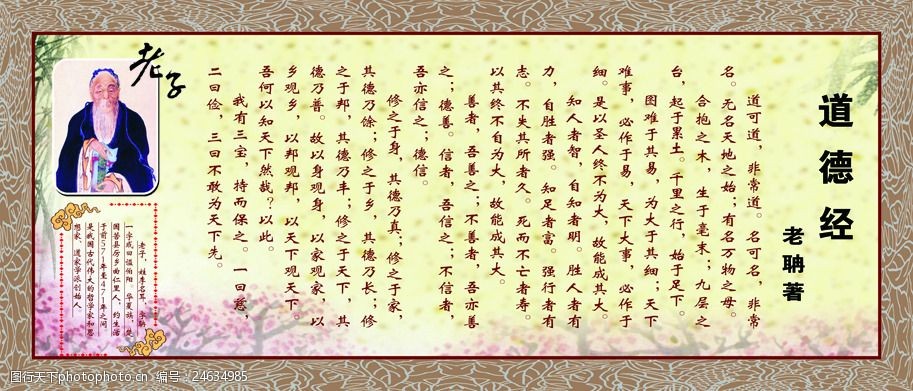 道德经
老聃著
道可道，非常道。名可名，非常
名。无名天地之始；有名万物之母。
合抱之木，生于毫末；九层之
台，起于累土。千里之行，始于足下。
图难于其易，为大于其细；天下
难事，必作于易，天下大事，必作于
细。是以圣人终不为大，故能成其大。
知人者智，自知者明。胜人者有
力，自胜者强。知足者富。强行者有
志。不失其所者久。死而不亡者寿。
以其终不自为大，故能成其大。
善者，吾善之；不善者，吾亦善
之；德善。信者，吾信之；不信者，
吾亦信之；德信。
修之于身，其德乃真；修之于家，
其德乃馀；修之于乡，其德乃长；修
之于邦，其德乃丰；修之于天下，其
德乃普。故以身观身，以家观家，以
乡观乡，以邦观邦，以天下观天下。
吾何以知天下然哉？以此。
我有三宝，持而保之。一曰慈，
二曰俭，三曰不敢为天下先。
老子
老子，姓李名耳，字聃，
一字或曰谥伯阳。华夏族，楚
国苦县厉乡曲仁里人，约生活
于前571年至471年之间
是我国古代伟大的哲学家和思
想家、道家学派创始人
图行天下photophoto.cn 编号：24634985